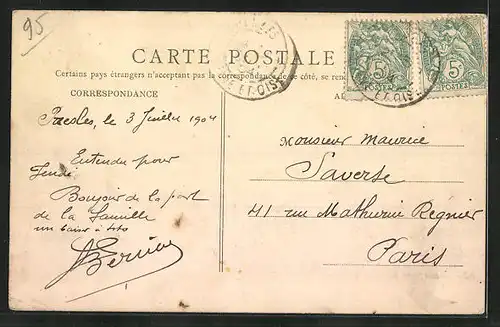 95
CARTE POSTALE
Certains pays étrangers n'acceptant pas la correspondance de ce côté, se
CORRESPONDANCE
Presles, le 3 Juillet 1904
Entendu pour
Jeudi
Bonjour de la part
de la famille
un baiser à
Monsieur Maurice
Saverse
41 rue Mathurin Régnier
Paris
5
POSTES
5
POSTES
ET-OISE
ET-OISE